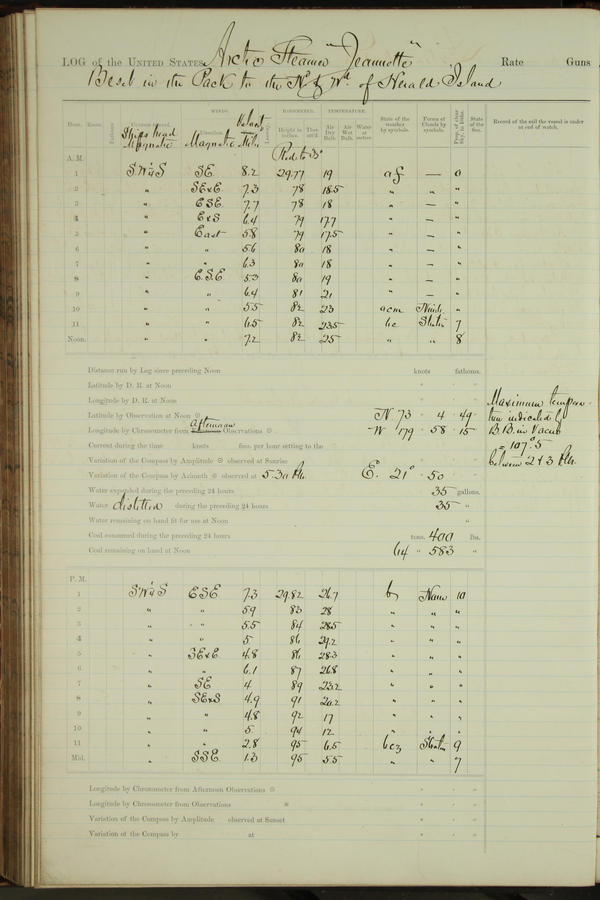 LOG of the UNITED STATES Arctic Steamer "Jeannette" Rate Guns
Beset in the Pack to the Nd & Wd of Herald Island
WINDS. BAROMETER. TEMPERATURE.
Hour. Knots. Fathoms. Courses steered. Direction. Leeway. Height in inches. Ther. att'd. Air Dry Bulb. Air Wet Bulb. Water at surface. State of the weather by symbols. Forms of Clouds by symbols. Prop. of clear sky, in tenths. State of the Sea. Record of the sail the vessel is under at end of watch.
Ships head Magnetic Magnetic
Red to 32°
A. M.
1 SW¼S SE 8.2 29.77 19 — 0
2 " SExE 7.3 78 18.5 " " "
3 " ESE 7.7 78 18 " — "
4 " ExS 6.4 79 17.7 " — "
5 " East 5.8 79 17.5 " — "
6 " " 5.6 80 18 " — "
7 " " 6.3 80 18 " — "
8 " E.S.E 5.3 80 19 " — "
9 " " 6.4 81 21 " — "
10 " " 5.5 82 23 "
11 " " 6.5 82 23.5 bc Stratus 7
Noon. " " 7.2 82 25 " " 8
Distance run by Log since preceding Noon knots fathoms.
Latitude by D. R. at Noon
Longitude by D. R. at Noon
Latitude by Observation at Noon N 73 · 4 · 49
Longitude by Chronometer from afternoon Observations W 179 · 58 · 15
Current during the time knots fms. per hour setting to the
Variation of the Compass by Amplitude observed at Sunrise
Variation of the Compass by Azimuth observed at 5.30 PM E. 21° · 50
Water expended during the preceding 24 hours 35 gallons.
Water distilled during the preceding 24 hours 35 "
Water remaining on hand fit for use at Noon "
Coal consumed during the preceding 24 hours tons. 400 lbs.
Coal remaining on hand at Noon 64 " 583 "
Maximum tempera-
ture indicated by
B.B. in Vacuo
= 107°.5
between 2 & 3 P.M.
P. M.
1 SW¼S ESE 7.3 29.82 26.7 b None 10
2 " " 5.9 83 28 " " "
3 " " 5.5 84 28.5 " " "
4 " " 5 86 29.2 " " "
5 " SExE 4.8 86 28.3 " " "
6 " " 6.1 87 26.8 " " "
7 " SE 4 89 23.2 " " "
8 " SExS 4.9 91 20.2 " " "
9 " " 4.8 92 17 " " "
10 " " 5 94 12 " " "
11 " " 2.8 95 6.5 bcz Stratus 9
Mid. " SSE 1.3 95 5.5 " " 7
Longitude by Chronometer from Afternoon Observations
Longitude by Chronometer from Observations
Variation of the Compass by Amplitude observed at Sunset
Variation of the Compass by at